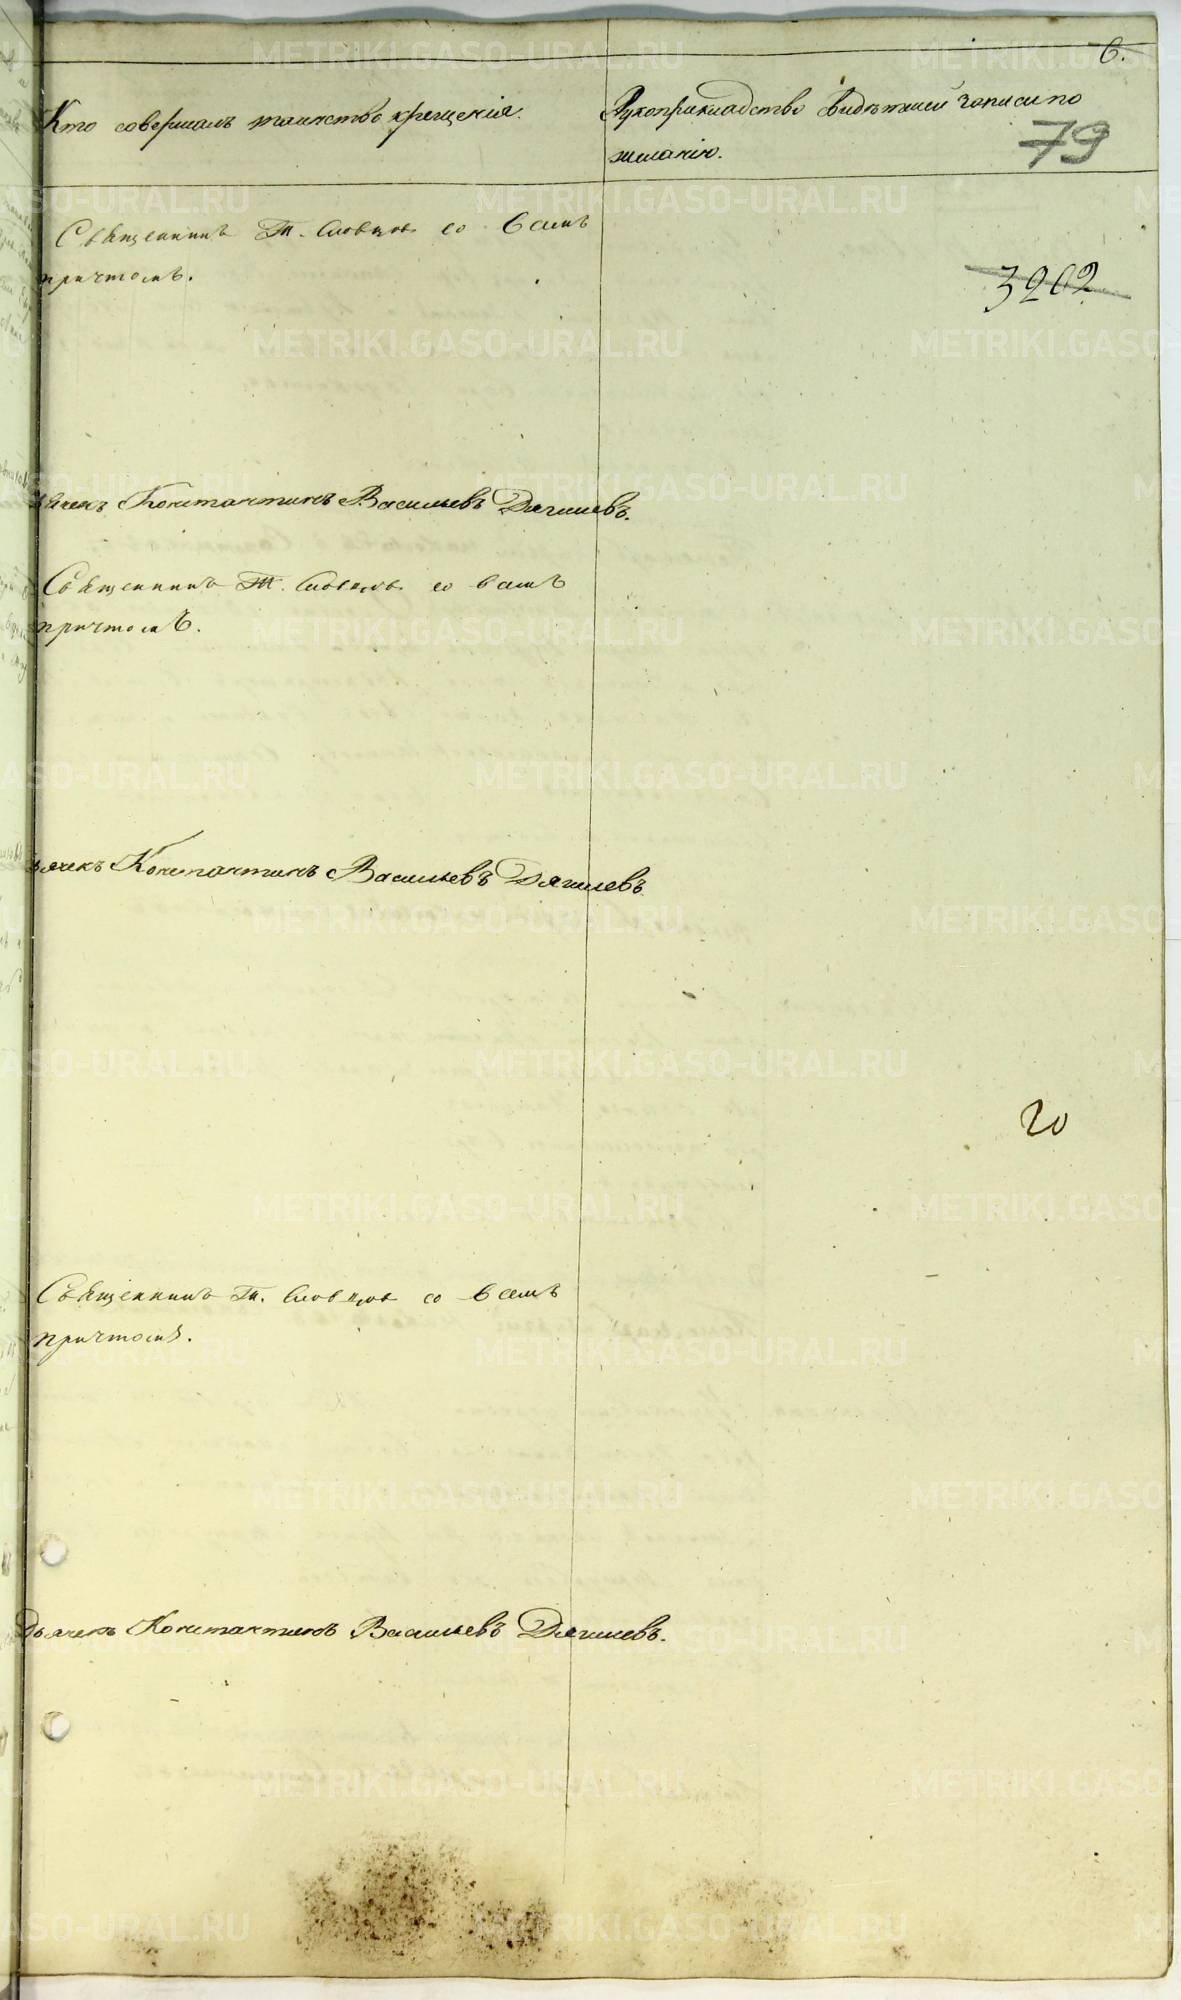 6.
Кто совершалъ таинство крещенія.
Рукоприкладство свидѣтелей записи по
желанію.
79
Священникъ Т. Словцовъ со всемъ
причтомъ.
3202
Дьячекъ Константинъ Васильевъ Дягилевъ.
Священникъ Т. Словцовъ со всемъ
причтомъ.
Дьячекъ Константинъ Васильевъ Дягилевъ.
20
Священникъ Т. Словцовъ со всемъ
причтомъ.
Дьячекъ Константинъ Васильевъ Дягилевъ.
METRIKI.GASO-URAL.RU